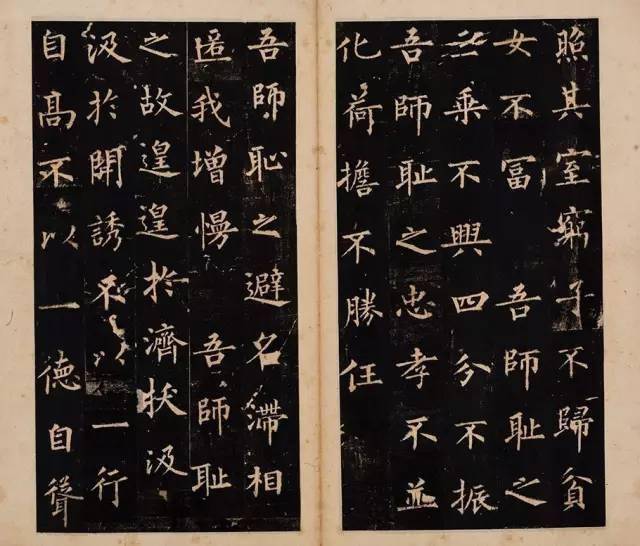 照其室窮子不歸貧
女不富 吾師耻之
三乘不興四分不振
吾師耻之忠孝不並
化荷擔不勝任
吾師恥之避名滯相
匿我增慢 吾師耻
之故遑遑於濟拔汲
汲於開誘不以一行
自高不以一德自聲